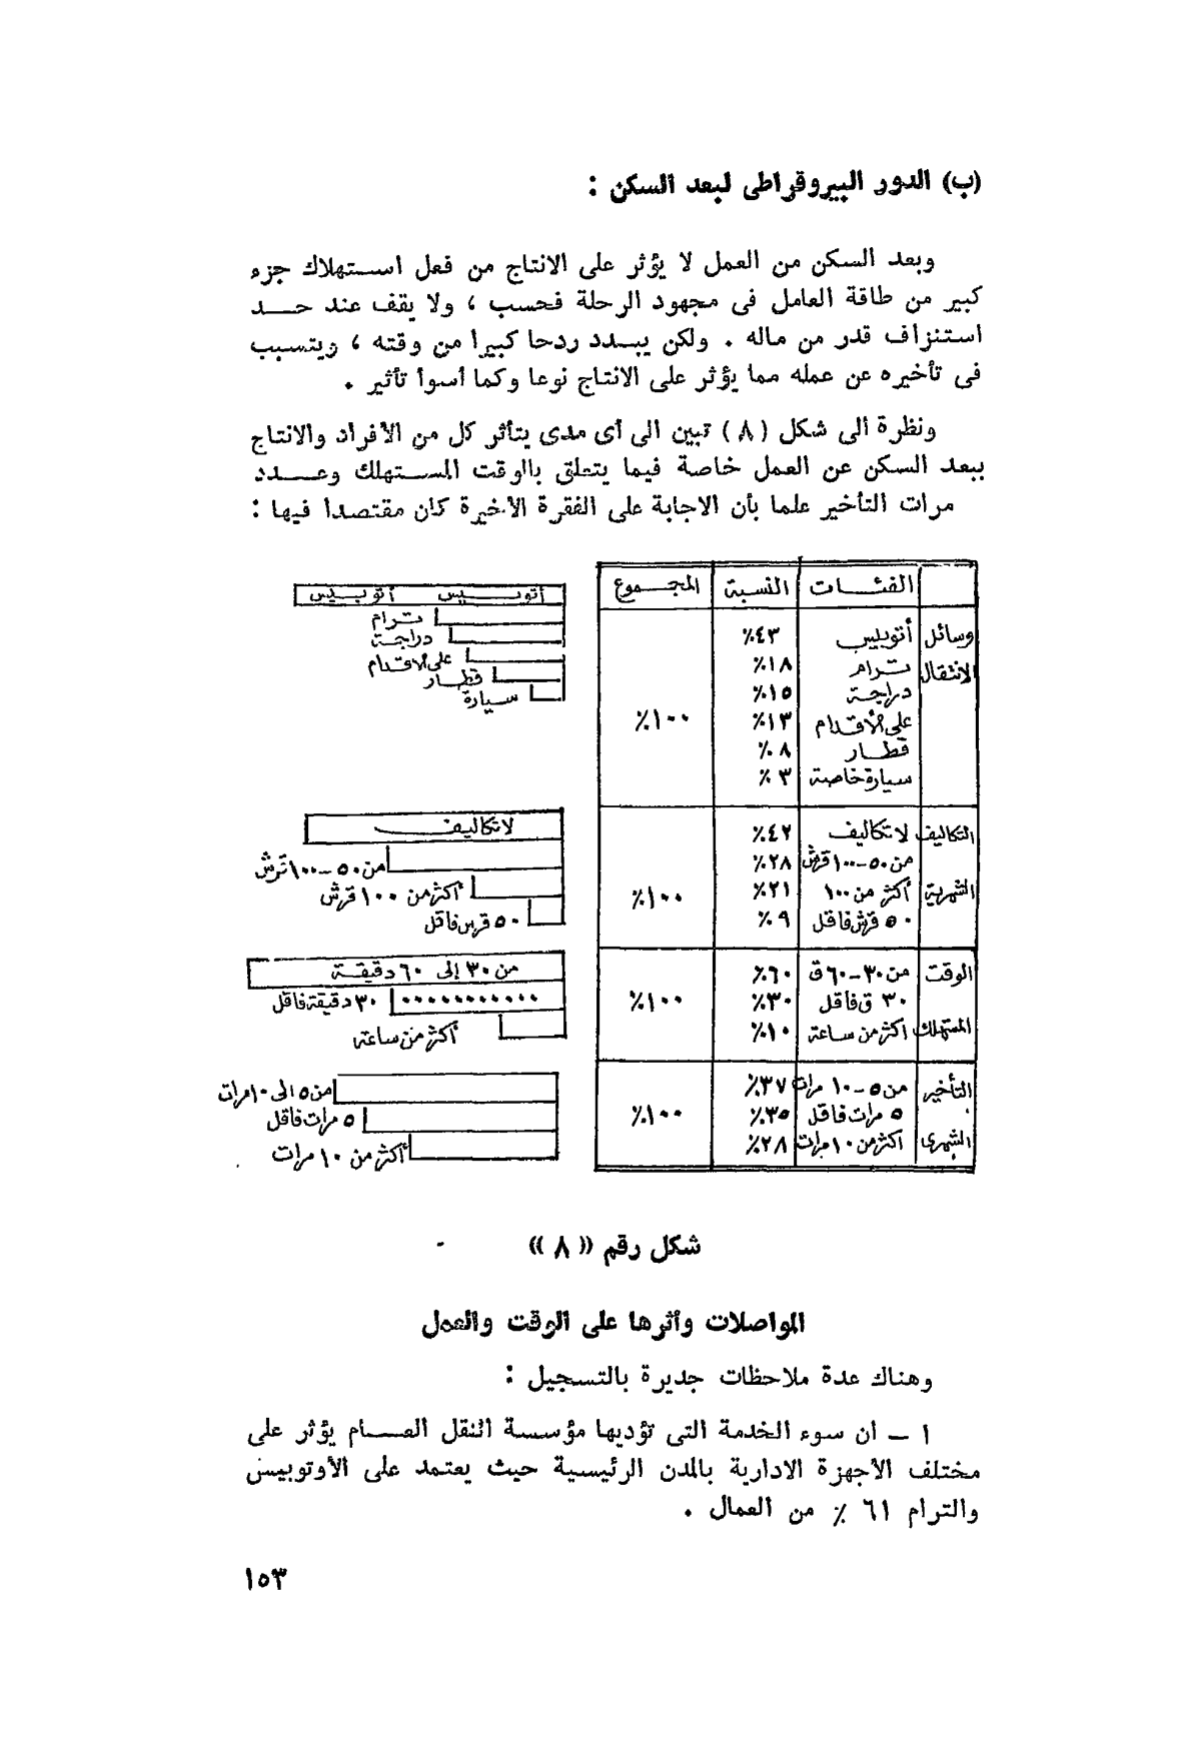 (ب) الدور البيروقراطى لبعد السكن :
وبعد السكن من العمل لا يؤثر على الانتاج من فعل استهلاك جزء
كبير من طاقة العامل فى مجهود الرحلة فحسب ، ولا يقف عند حد
استنزاف قدر من ماله . ولكن يبدد ردحا كبيرا من وقته ، ويتسبب
فى تأخيره عن عمله مما يؤثر على الانتاج نوعا وكما أسوأ تأثير .
ونظرة الى شكل ( ٨ ) تبين الى أى مدى يتأثر كل من الأفراد والانتاج
ببعد السكن عن العمل خاصة فيما يتعلق بالوقت المستهلك وعدد
مرات التأخير علما بأن الاجابة على الفقرة الأخيرة كان مقتصدا فيها :
الفئات النسبة المجموع
وسائل الانتقال
أتوبيس ٤٣٪
ترام ١٨٪
دراجة ١٥٪
على الأقدام ١٣٪
قطار ٨٪
سيارة خاصة ٣٪
١٠٠٪
التكاليف الشهرية
لا تكاليف ٤٢٪
من ٥٠-١٠٠ قرش ٢٨٪
أكثر من ١٠٠ ٢١٪
٥٠ قرش فاقل ٩٪
١٠٠٪
الوقت المستهلك
من ٣٠-٦٠ ق ٦٠٪
٣٠ ق فاقل ٣٠٪
اكثر من ساعة ١٠٪
١٠٠٪
التأخير الشهرى
من ٥-١٠ مرات ٣٧٪
٥ مرات فاقل ٣٥٪
اكثر من ١٠ مرات ٢٨٪
١٠٠٪
أتوبيس أتوبيس
ترام
دراجة
على الاقدام
قطار
سيارة
لا تكاليف
من ٥٠-١٠٠ قرش
أكثر من ١٠٠ قرش
٥٠ قرس فاقل
من ٣٠ إلى ٦٠ دقيقة
٣٠ دقيقة فاقل
أكثر من ساعة
من ٥ الى ١٠ مرات
٥ مرات فاقل
أكثر من ١٠ مرات
شكل رقم « ٨ »
المواصلات وأثرها على الوقت والعمل
وهناك عدة ملاحظات جديرة بالتسجيل :
١ - ان سوء الخدمة التى تؤديها مؤسسة النقل العام يؤثر على
مختلف الأجهزة الادارية بالمدن الرئيسية حيث يعتمد على الأوتوبيس
والترام ٦١ ٪ من العمال .
١٥٣